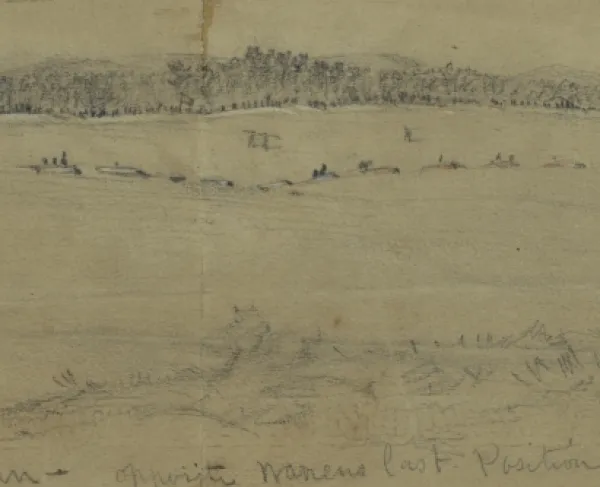 opposite Warrens last Position